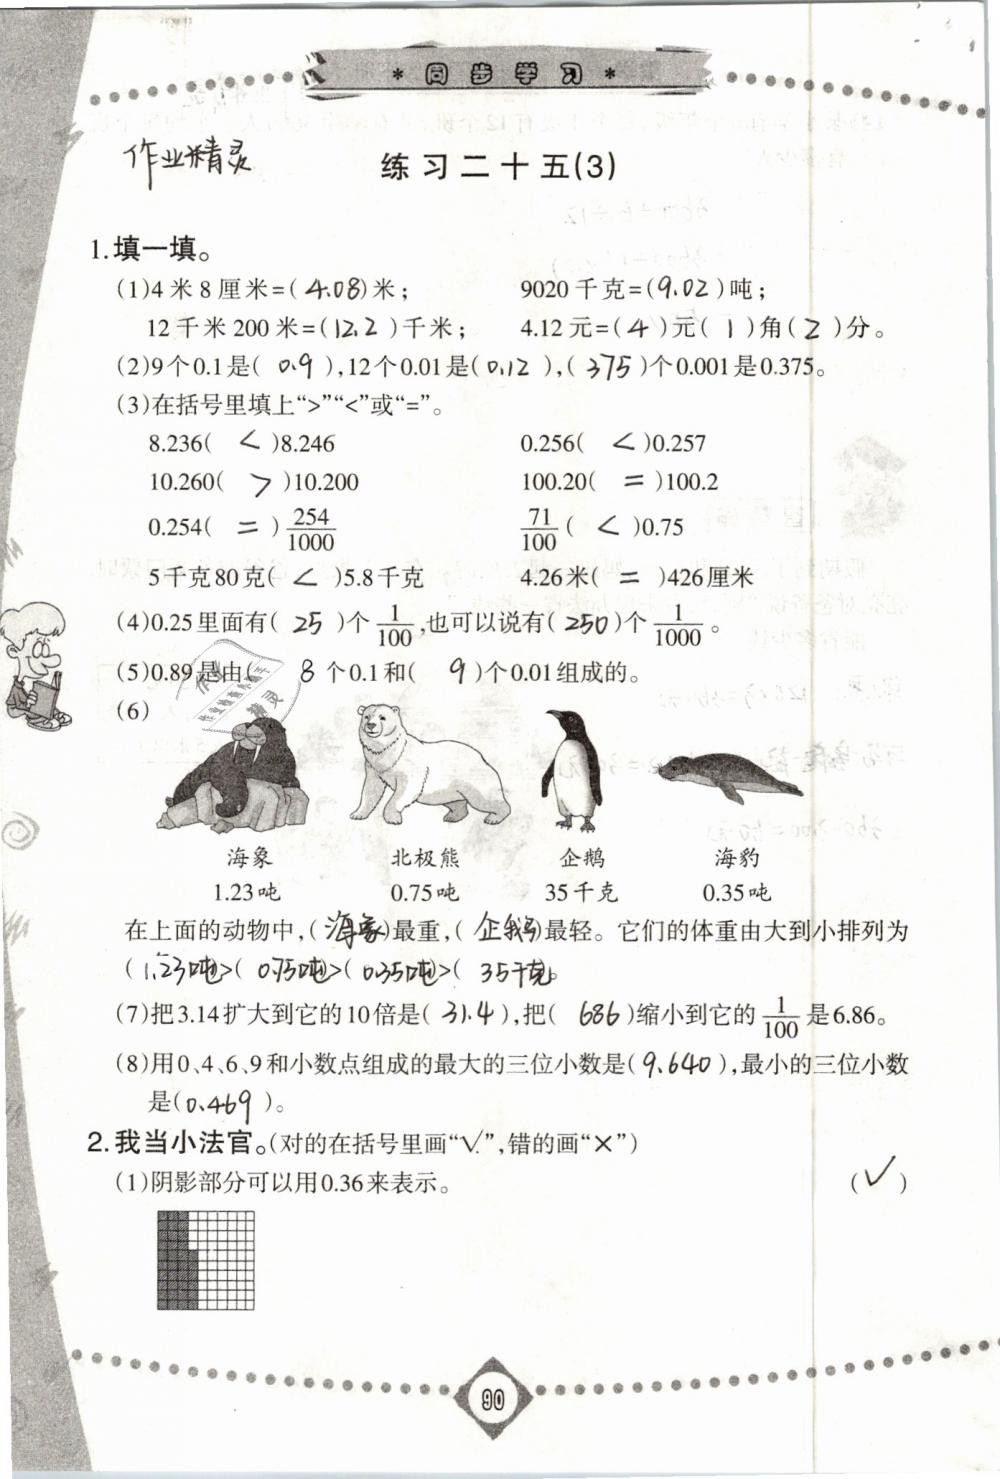 *同步学习*
作业精灵
练习二十五(3)
1.填一填。
(1)4米8厘米=(4.08)米; 9020千克=(9.02)吨;
12千米200米=(12.2)千米; 4.12元=(4)元(1)角(2)分。
(2)9个0.1是(0.9),12个0.01是(0.12),(375)个0.001是0.375。
(3)在括号里填上“>”“<”或“=”。
8.236(<)8.246 0.256(<)0.257
10.260(>)10.200 100.20(=)100.2
0.254(=)254/1000 71/100(<)0.75
5千克80克(<)5.8千克 4.26米(=)426厘米
(4)0.25里面有(25)个1/100,也可以说有(250)个1/1000。
(5)0.89是由(8个0.1和(9)个0.01组成的。
(6)
海象 北极熊 企鹅 海豹
1.23吨 0.75吨 35千克 0.35吨
在上面的动物中,(海象)最重,(企鹅)最轻。它们的体重由大到小排列为
(1.23吨>(0.75吨>(0.35吨>(35千克。
(7)把3.14扩大到它的10倍是(31.4),把(686)缩小到它的1/100是6.86。
(8)用0、4、6、9和小数点组成的最大的三位小数是(9.640),最小的三位小数
是(0.469)。
2.我当小法官。(对的在括号里画“√”,错的画“×”)
(1)阴影部分可以用0.36来表示。 (✓)
90